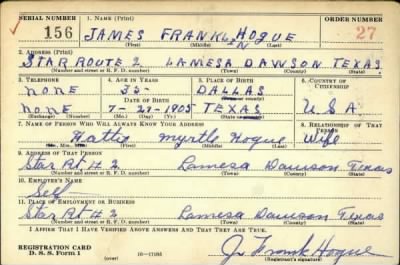 SERIAL NUMBER 1. NAME (Print) ORDER NUMBER
156 JAMES FRANKLIN HOGUE 27
(First) (Middle) (Last)
2. ADDRESS (Print)
STAR ROUTE 2 LAMESA DAWSON TEXAS
(Number and street or R. F. D. number) (Town) (County) (State)
3. TELEPHONE 4. AGE IN YEARS 5. PLACE OF BIRTH 6. COUNTRY OF CITIZENSHIP
none 35 DALLAS
DATE OF BIRTH (Town or county)
none 7-27-1905 TEXAS U S A
(Exchange) (Number) (Mo.) (Day) (Yr.) (State or country)
7. NAME OF PERSON WHO WILL ALWAYS KNOW YOUR ADDRESS 8. RELATIONSHIP OF THAT PERSON
Hattie myrtle Hogue Wife
(Mr., Mrs., Miss) (First) (Middle) (Last)
9. ADDRESS OF THAT PERSON
Star Rt # 2 Lamesa Dawson Texas
(Number and street or R. F. D. number) (Town) (County) (State)
10. EMPLOYER'S NAME
Self
11. PLACE OF EMPLOYMENT OR BUSINESS
Star Rt # 2 Lamesa Dawson Texas
(Number and street or R. F. D. number) (Town) (County) (State)
I AFFIRM THAT I HAVE VERIFIED ABOVE ANSWERS AND THAT THEY ARE TRUE.
REGISTRATION CARD
D. S. S. Form 1 (over) 16-17105 J. Frank Hogue
(Registrant's signature)